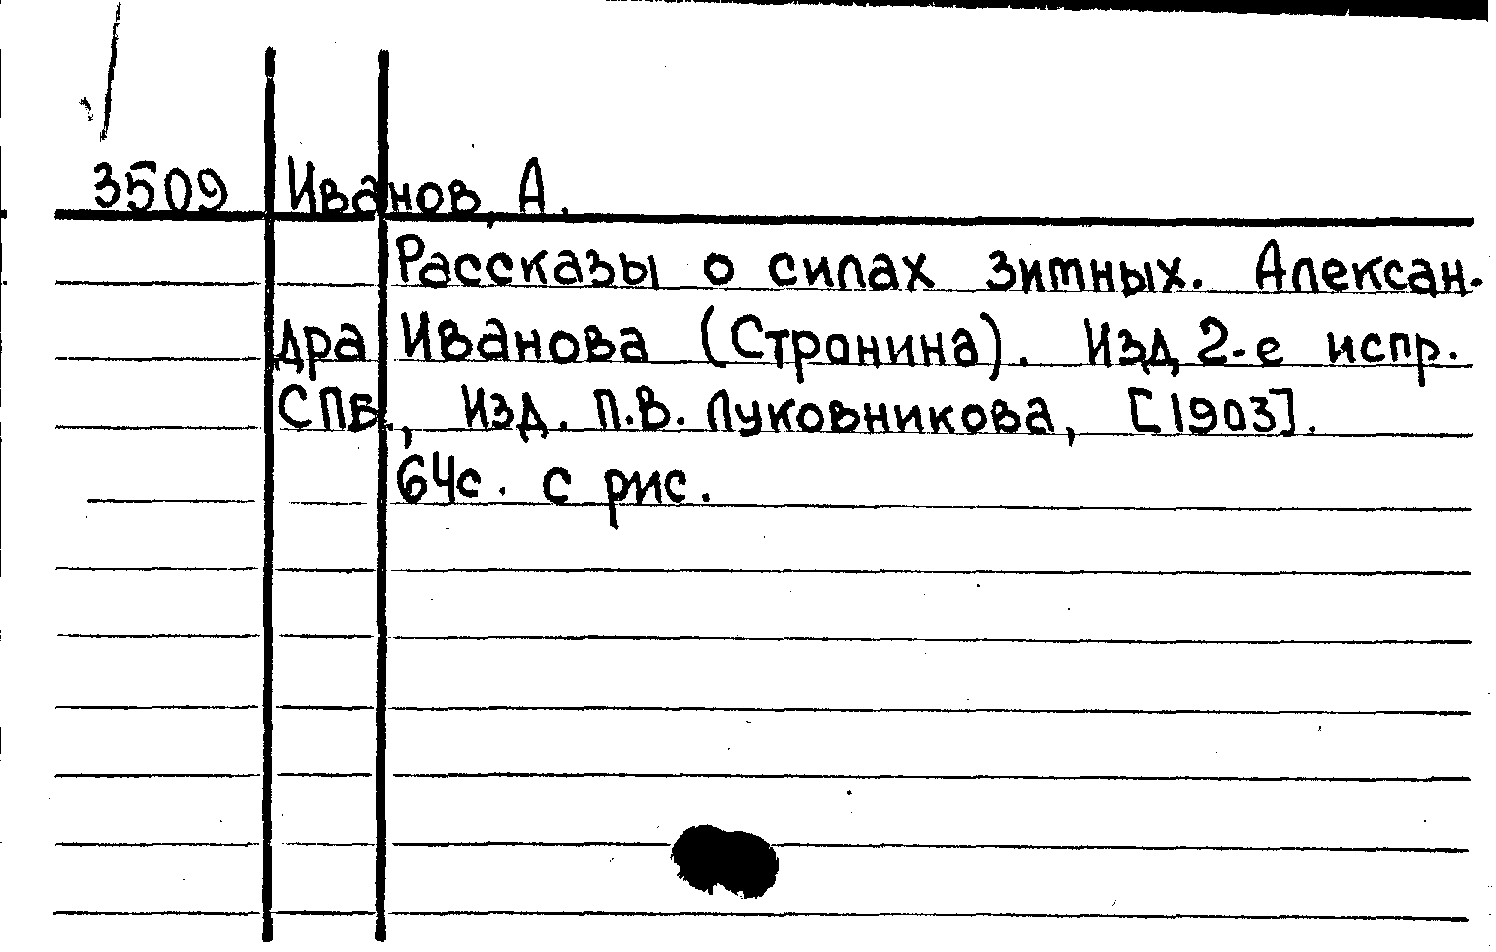 3509 Иванов, А.
Рассказы о силах зитных. Алексан-
дра Иванова (Стронина). Изд 2-е испр.
СПБ., Изд. П.В. Луковникова, [1903].
64с. с рис.